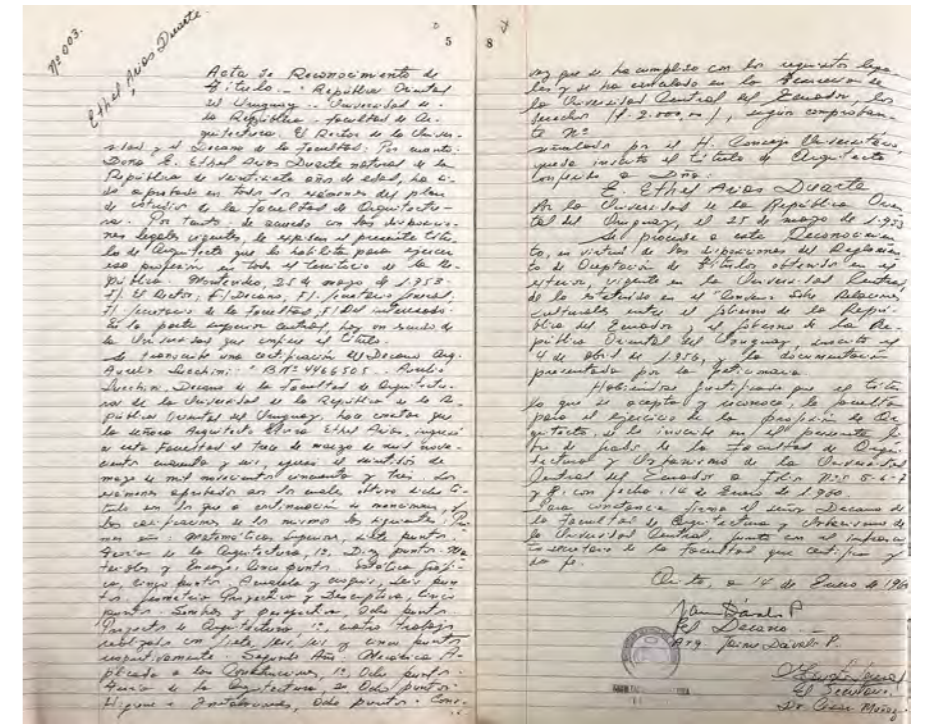 Nº 003.
Ethel Arias Duarte.
5
Acta de Reconocimiento de
Título. - República Oriental
del Uruguay - Universidad de
la República - Facultad de Ar-
quitectura. El Rector de la Univer-
sidad y el Decano de la Facultad: Por cuanto
Doña E. Ethel Arias Duarte natural de la
República de veintisiete años de edad, ha si-
do aprobada en todos los exámenes del plan
de estudios de la Facultad de Arquitectu-
ra. Por tanto de acuerdo con las disposicio-
nes legales vigentes, le expiden el presente títu-
lo de Arquitecto que la habilita para ejercer
esa profesión en todo el territorio de la Re-
pública. Montevideo, 25 de mayo de 1.953.
f). El Rector, f) Decano, f). Secretario General,
f) Secretario de la Facultad, f) Del interesado.
En la parte superior central, hay un escudo de
la Universidad que confiere el título.
Se transcribe una certificación del Decano Arq.
Aurelio Lucchini: "B Nº 4466505. Aurelio
Lucchini Decano de la Facultad de Arquitectu-
ra de la Universidad de la República de la Re-
pública Oriental del Uruguay, hace constar que
la señora Arquitecto Elvira Ethel Arias, ingresó
a esta Facultad el trece de marzo de mil nove-
cientos cuarenta y seis, egresó el veintidós de
mayo de mil novecientos cincuenta y tres. Los
exámenes aprobados en los cuales obtuvo dicho tí-
tulo son los que a continuación se mencionan, y
las calificaciones de los mismos las siguientes: Pri-
mer año: Matemáticas Superior, siete puntos.
Teoría de la Arquitectura, 1º. Diez puntos. Ma-
teriales y Ensayos. Cinco puntos. Estática gráfi-
ca, cinco puntos. Acuarela y croquis, seis pun-
tos. Geometría Proyectiva y Descriptiva, cinco
puntos. Sombras y perspectiva. Ocho puntos.
Proyectos de Arquitectura 1º, cuatro trabajos
realizados con siete, seis, seis y cinco puntos
respectivamente. Segundo Año. Mecánica A-
plicada a las Construcciones, 1º. Ocho puntos.
Teoría de la Arquitectura, 2º Ocho puntos.
Higiene e Instalaciones, Ocho puntos. Cons-
8
vez que se ha cumplido con los requisitos lega-
les y se ha cancelado en la Tesorería de
la Universidad Central del Ecuador, los
derechos (f. 2.000,oo), según comproban-
te Nº
señalado por el H. Consejo Universitario,
queda inscrito el título de Arquitecto
conferido a Doña:
E. Ethel Arias Duarte
En la Universidad de la República Orien-
tal del Uruguay, el 25 de mayo de 1.953
Se procede a este Reconocimien-
to, en virtud de las disposiciones del Reglamen-
to de Aceptación de Títulos obtenidos en el
exterior, vigente en la Universidad Central,
de lo estatuido en el "Convenio Sobre Relaciones
culturales entre el gobierno de la Repú-
blica del Ecuador y el gobierno de la Re-
pública Oriental del Uruguay, suscrito el
4 de abril de 1.956, y la documentación
presentada por la peticionaria.
Habiéndose justificado que el títu-
lo que se acepta y reconoce, la faculta
para el ejercicio de la profesión de Ar-
quitecto, se lo inscribe en el presente li-
bro de grados de la Facultad de Arqui-
tectura y Urbanismo de la Universidad
Central del Ecuador a folios Nº.s 5-6-7
y 8, con fecha, 14 de Enero de 1.960.
Para constancia firma el señor Decano de
la Facultad de Arquitectura y Urbanismo de
la Universidad Central, junto con el infrascri-
to secretario de la Facultad que certifica y
da fe.
Quito, a 14 de Enero de 1960
Jaime Dávalos P.
El Decano.
Arq. Jaime Dávalos P.
El Secretario.
Dr. César Muñoz.